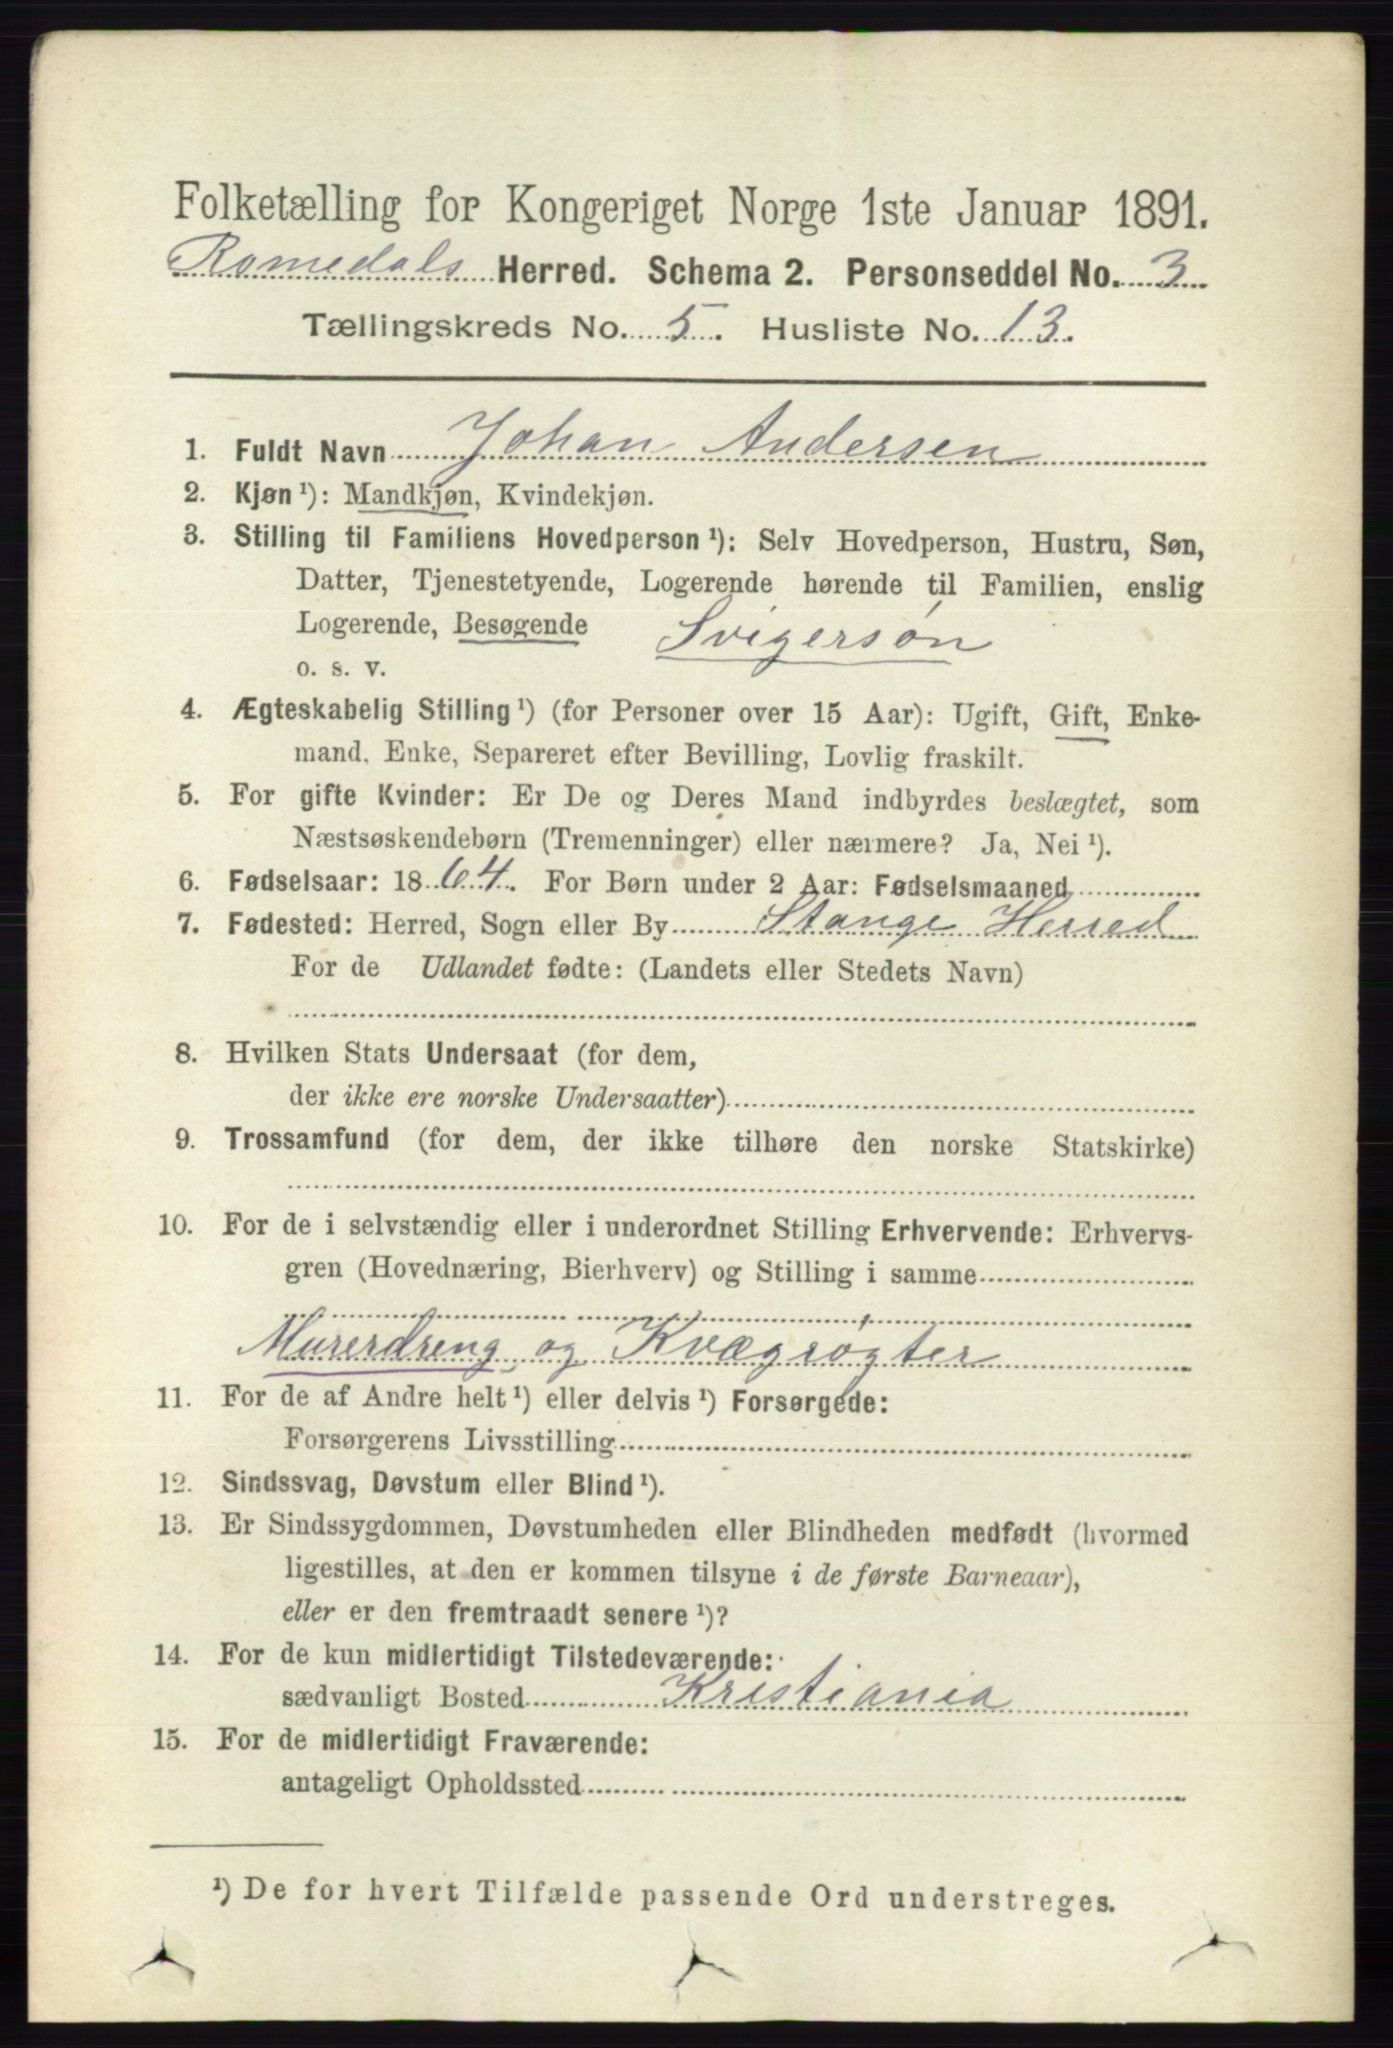 Folketælling for Kongeriget Norge 1ste Januar 1891.
Romedals Herred. Schema 2. Personseddel No. 3
Tællingskreds No. 5. Husliste No. 13.
1. Fuldt Navn Johan Andersen
2. Kjøn ¹): Mandkjøn, Kvindekjøn.
3. Stilling til Familiens Hovedperson ¹): Selv Hovedperson, Hustru, Søn,
Datter, Tjenestetyende, Logerende hørende til Familien, enslig
Logerende, Besøgende Svigersøn
o. s. v.
4. Ægteskabelig Stilling ¹) (for Personer over 15 Aar): Ugift, Gift, Enke-
mand, Enke, Separeret efter Bevilling, Lovlig fraskilt.
5. For gifte Kvinder: Er De og Deres Mand indbyrdes beslægtet, som
Næstsøskendebørn (Tremenninger) eller nærmere? Ja, Nei ¹).
6. Fødselsaar: 1864. For Børn under 2 Aar: Fødselsmaaned
7. Fødested: Herred, Sogn eller By Stange Herred
For de Udlandet fødte: (Landets eller Stedets Navn)
8. Hvilken Stats Undersaat (for dem,
der ikke ere norske Undersaatter)
9. Trossamfund (for dem, der ikke tilhøre den norske Statskirke)
10. For de i selvstændig eller i underordnet Stilling Erhvervende: Erhvervs-
gren (Hovednæring, Bierhverv) og Stilling i samme
Murerdreng og Kvægrøgter
11. For de af Andre helt ¹) eller delvis ¹) Forsørgede:
Forsørgerens Livsstilling
12. Sindssvag, Døvstum eller Blind ¹).
13. Er Sindssygdommen, Døvstumheden eller Blindheden medfødt (hvormed
ligestilles, at den er kommen tilsyne i de første Barneaar),
eller er den fremtraadt senere ¹)?
14. For de kun midlertidigt Tilstedeværende:
sædvanligt Bosted Kristiania
15. For de midlertidigt Fraværende:
antageligt Opholdssted
¹) De for hvert Tilfælde passende Ord understreges.